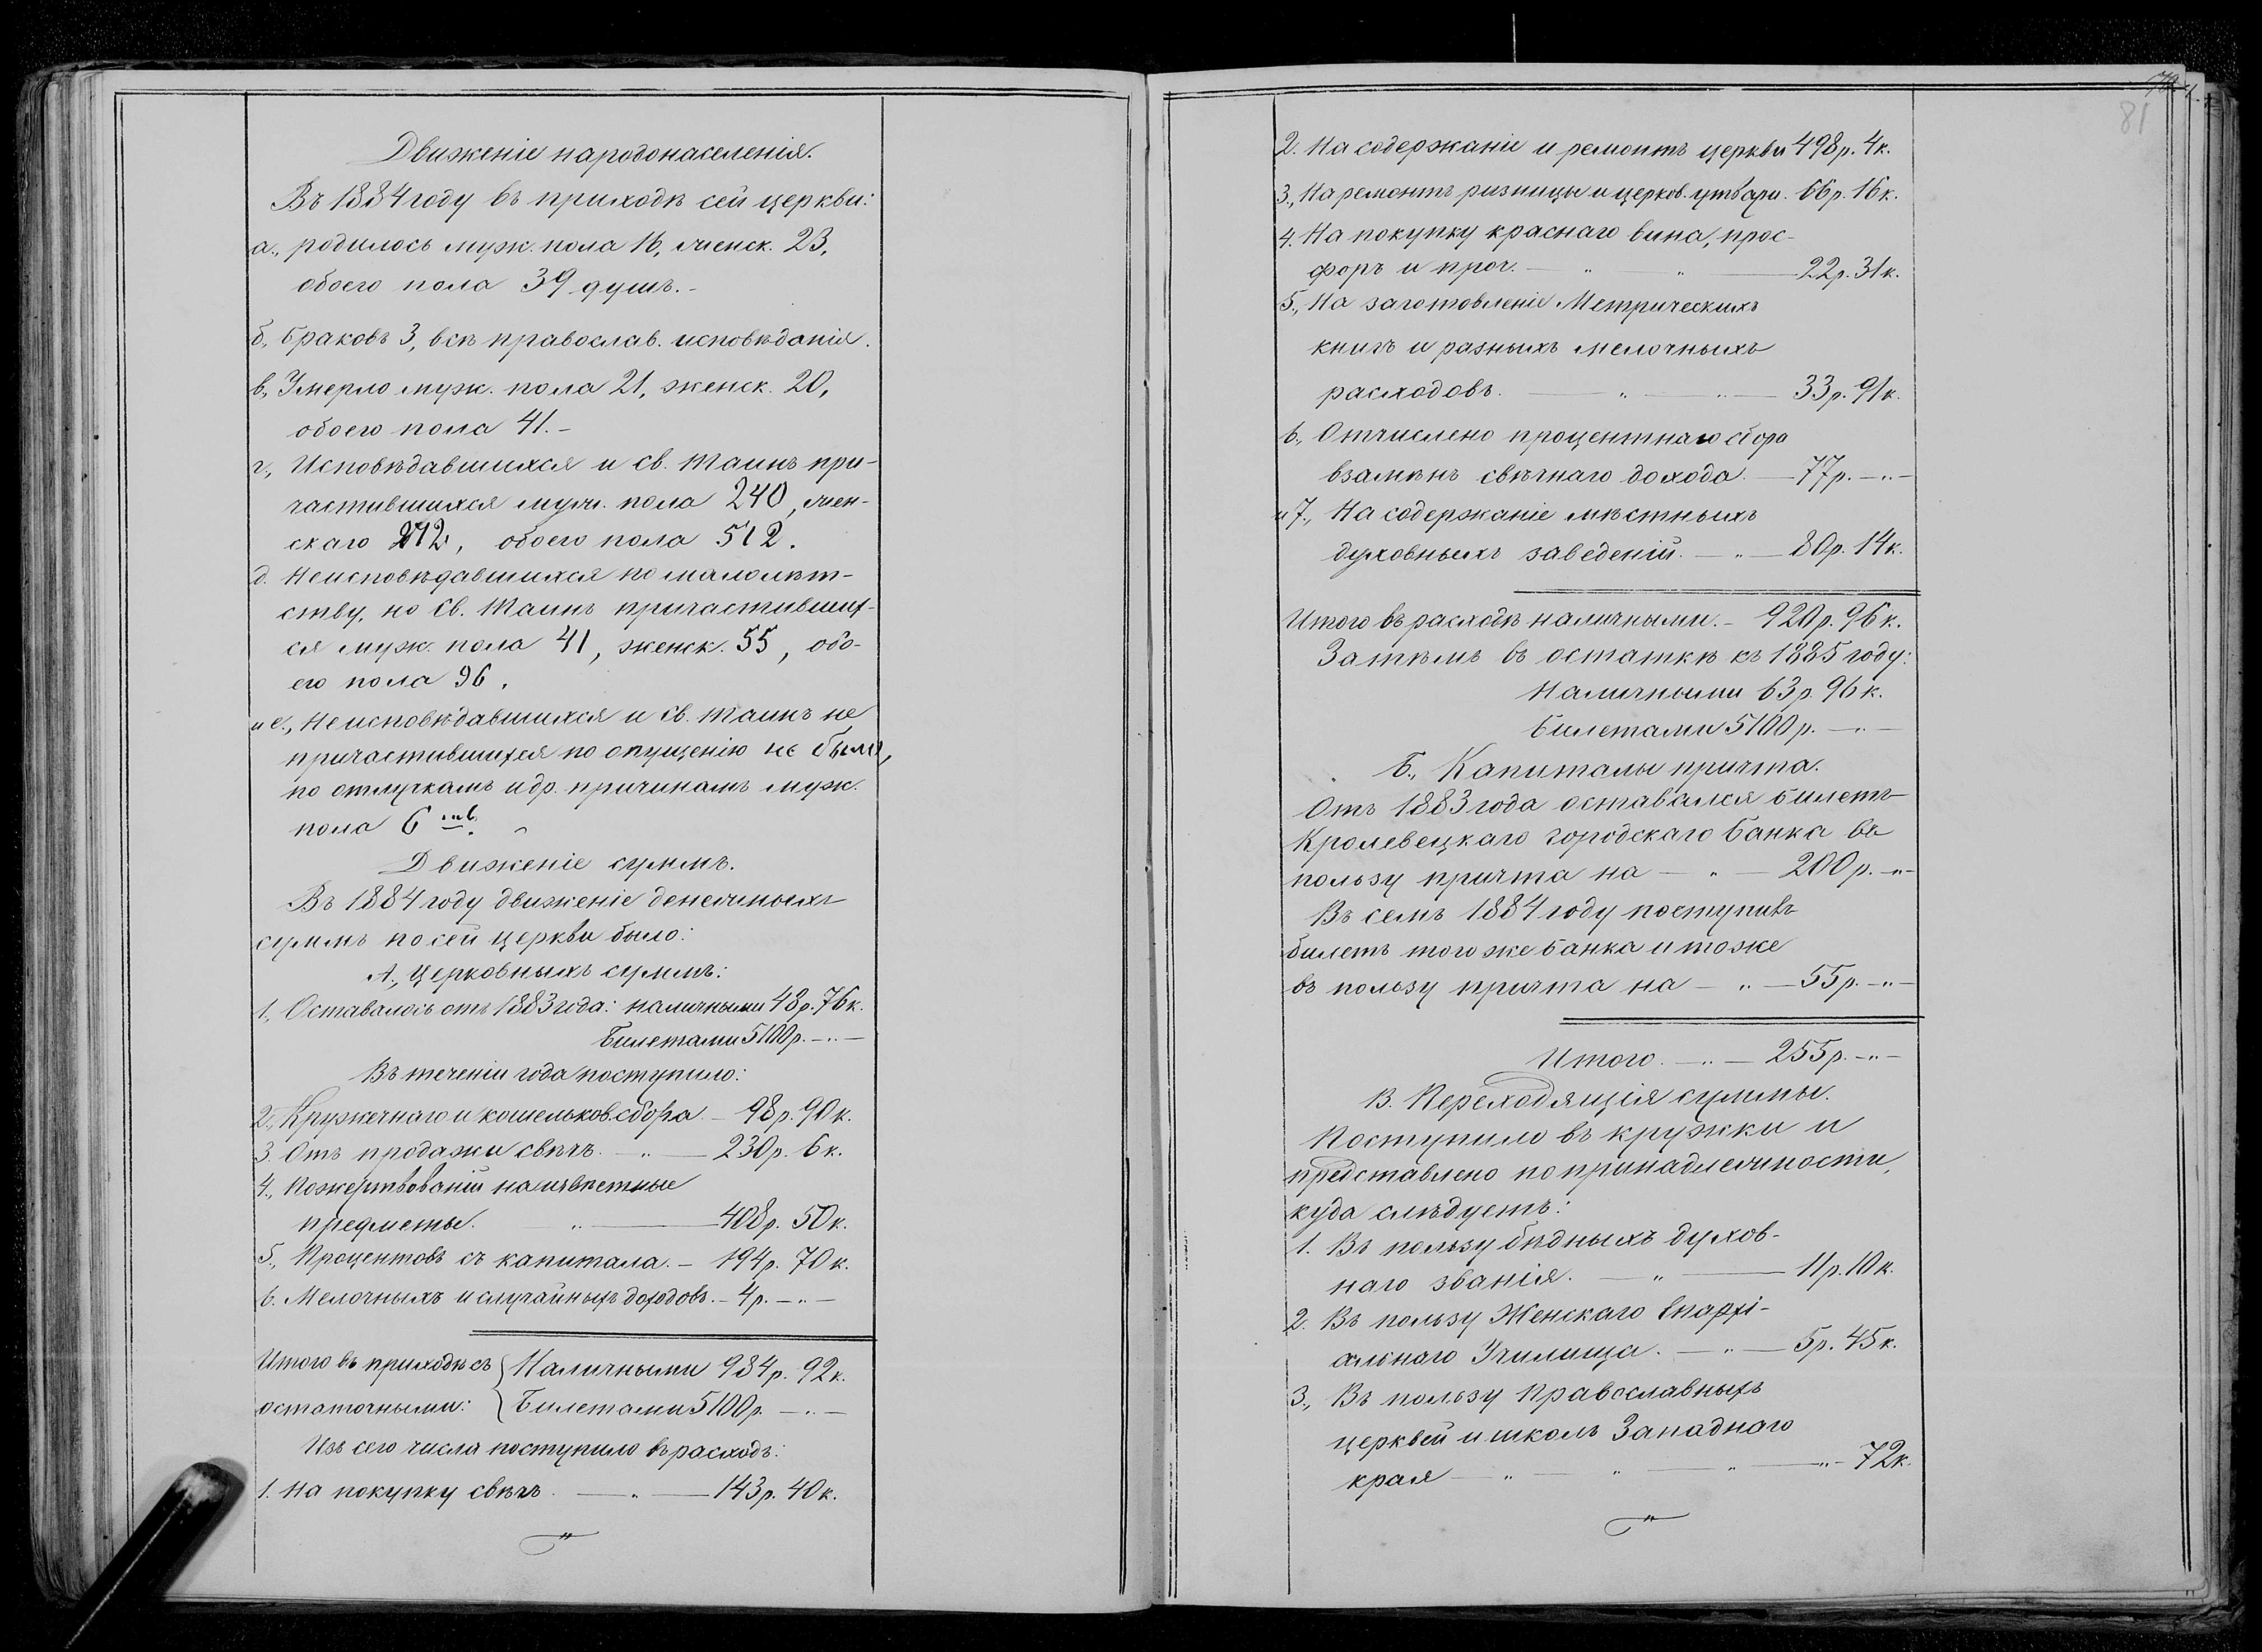 Движеніе народонаселенія.
Въ 1884 году въ приходѣ сей церкви:
а., родилось муж. пола 16, женск. 23,
обоего пола 39 душъ.-
б., браковъ 3, всѣ православ. исповѣданія.
в., Умерло муж. пола 21, женск. 20,
обоего пола 41.-
г., Исповѣдавшихся и св. Таинъ при-
частившихся муж. пола 240, жен-
скаго 272, обоего пола 512.
д. Неисповѣдавшихся по малолѣт-
ству, но св. Таинъ причастивших-
ся муж. пола 41, женск. 55, обо-
его пола 96.
и е., Неисповѣдавшихся и св. Таинъ не
причастившихся по опущенію не было,
по отлучкамъ и др. причинамъ муж.
пола 6
Движеніе суммъ.
Въ 1884 году движеніе денежныхъ
суммъ по сей церкви было:
А., Церковныхъ суммъ:
1., Оставалось отъ 1883 года: наличными 48 р. 76 к.
Билетами 5100 р. - „ -
Въ теченіи года поступило:
2., Кружечнаго и кошельков. сбора. - 98 р. 90 к.
3. Отъ продажи свѣчъ. - „ - 230 р. 6 к.
4., Пожертвованій на извѣстные
предметы. - „ - 408 р. 50 к.
5., Процентовъ съ капитала. - 194 р. 70 к.
6. Мелочныхъ и случайныхъ доходовъ. - 4 р. - „ -
Итого въ приходѣ съ { Наличными 984 р. 92 к.
остаточными: { Билетами 5100 р. - „ -
Изъ сего числа поступило въ расходъ:
1. На покупку свѣчъ. - „ - 143 р. 40 к.
81
2. На содержаніе и ремонтъ церкви 498 р. 4 к.
3., На ремонтъ ризницы и церков. утвари. 66 р. 16 к.
4. На покупку краснаго вина, прос-
форъ и проч. - „ - „ - 22 р. 31 к.
5., На заготовленіе Метрическихъ
книгъ и разныхъ мелочныхъ
расходовъ. - „ - „ - 33 р. 91 к.
6., Отчислено процентнаго сбора
взамѣнъ свѣчнаго дохода. - 77 р. - „ -
и 7., На содержаніе мѣстныхъ
духовныхъ заведеній. - „ - 80 р. 14 к.
Итого въ расходѣ наличными. - 920 р. 96 к.
Затѣмъ въ остаткѣ къ 1885 году:
Наличными 63 р. 96 к.
Билетами 5100 р. - „ -
Б., Капиталы причта.
Отъ 1883 года оставался билетъ
Кролевецкаго городскаго банка въ
пользу причта на - „ - 200 р. - „ -
Въ семъ 1884 году поступилъ
билетъ того же банка и тоже
въ пользу причта на - „ - 55 р. - „ -
Итого. - „ - 255 р. - „ -
В. Переходящія суммы.
Поступило въ кружки и
представлено по принадлежности,
куда слѣдуетъ:
1. Въ пользу бѣдныхъ духов-
наго званія. - „ - 11 р. 10 к.
2. Въ пользу Женскаго Епархі-
альнаго Училища. - „ - 5 р. 45 к.
3., Въ пользу Православныхъ
церквей и школъ Западнаго
края - „ - „ - „ - „ - 72 к.